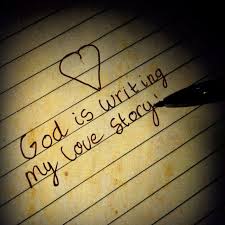 God is writing
my love story